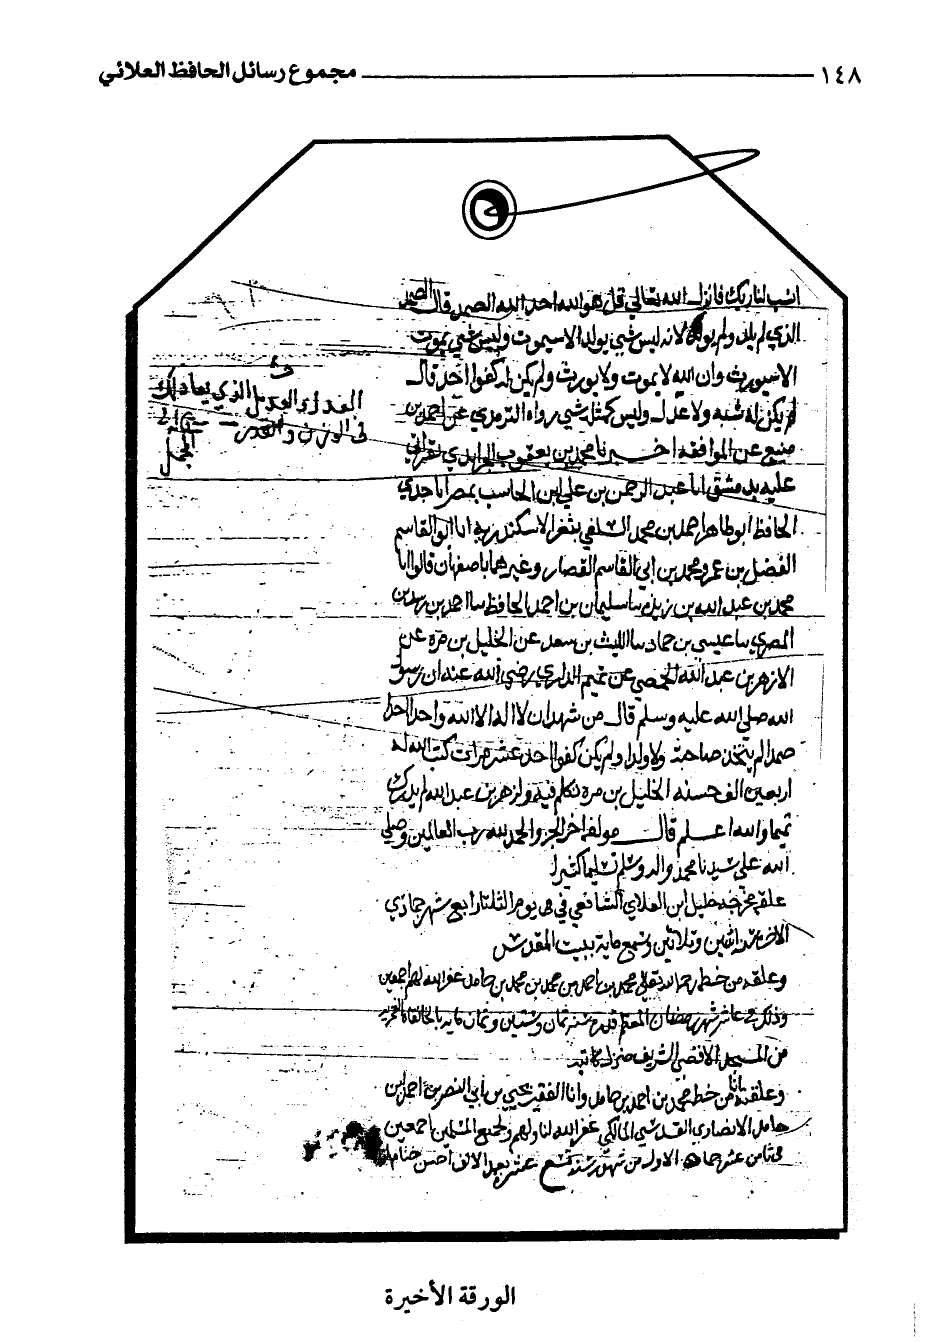 ١٤٨ مجموع رسائل الحافظ العلائي
انسب لنا ربك فانزل الله تعالى قل هو الله احد الله الصمد قال الصمد
الذي لم يلد ولم يولد لانه ليس شي يولد الا سيموت وليس شي يموت
الا سيورث وان الله لا يموت ولا يورث ولم يكن له كفوا احد قال
لم يكن له شبه ولا عدل وليس كمثله شي رواه الترمذي عن احمد بن
منيع عن الموافقه اخبرنا محمد بن يعقوب الجرايدي بقراتي
عليه بدمشق انا عبد الرحمن بن علي ابن الحاسب بمصر انا جدي
الحافظ ابو طاهر احمد بن محمد السلفي بثغر الاسكندريه انا ابو القاسم
الفضل بن عمر ومحمد بن ابي القاسم القصار وغيرهما باصفهان قالوا انا
محمد بن عبد الله بن ريذه سا سليمان بن احمد الحافظ سا احمد بن رشدين
المصري سا عيسى بن حماد سا الليث بن سعد عن الخليل بن مره عن
الازهر بن عبد الله الحمصي عن تميم الداري رضي الله عنه ان رسول
الله صلى الله عليه وسلم قال من شهد ان لا اله الا الله واحدا احدا
صمدا لم يتخذ صاحبة ولا ولدا ولم يكن له كفوا احد عشر مرات كتب الله له
اربعين الف حسنه الخليل بن مره تكلم فيه وازهر بن عبد الله لم يدرك
تميما والله اعلم قال مولفه اخر الجزو والحمد لله رب العالمين وصلى
الله على سيدنا محمد واله وسلم تسليما كثيرا
علقه مخرجه خليل ابن العلاي الشافعي في يوم الثلثا رابع شهر جمادي
الاخرة سنة اثنين وثلاثين وسبع مايه ببيت المقدس
وعلقه من خطه رحمه الله تعالى محمد بن احمد بن محمد بن محمد بن حامد عفا الله لهم اجمعين
وذلك في عاشر شهر رمضان المعظم قدره سنة ثمان وستين وثمان مايه بالخانقاه الفخريه
من المسجد الاقصى الشريف منزل كاتبه
وعلقه ثانيا من خط محمد بن احمد بن حامد وانا الفقير يحيى بن ابي النصر بن احمد ابن
حامد الانصاري القدسي المالكي غفر الله لنا ولهم ولجميع المسلمين اجمعين
في ثامن عشر جماد الاول من شهور سنة تسع عشر بعد الالف احسن ختامها
العدل والعديل الذي يعادلك
في الوزن والقدر
المجمل
الورقة الأخيرة